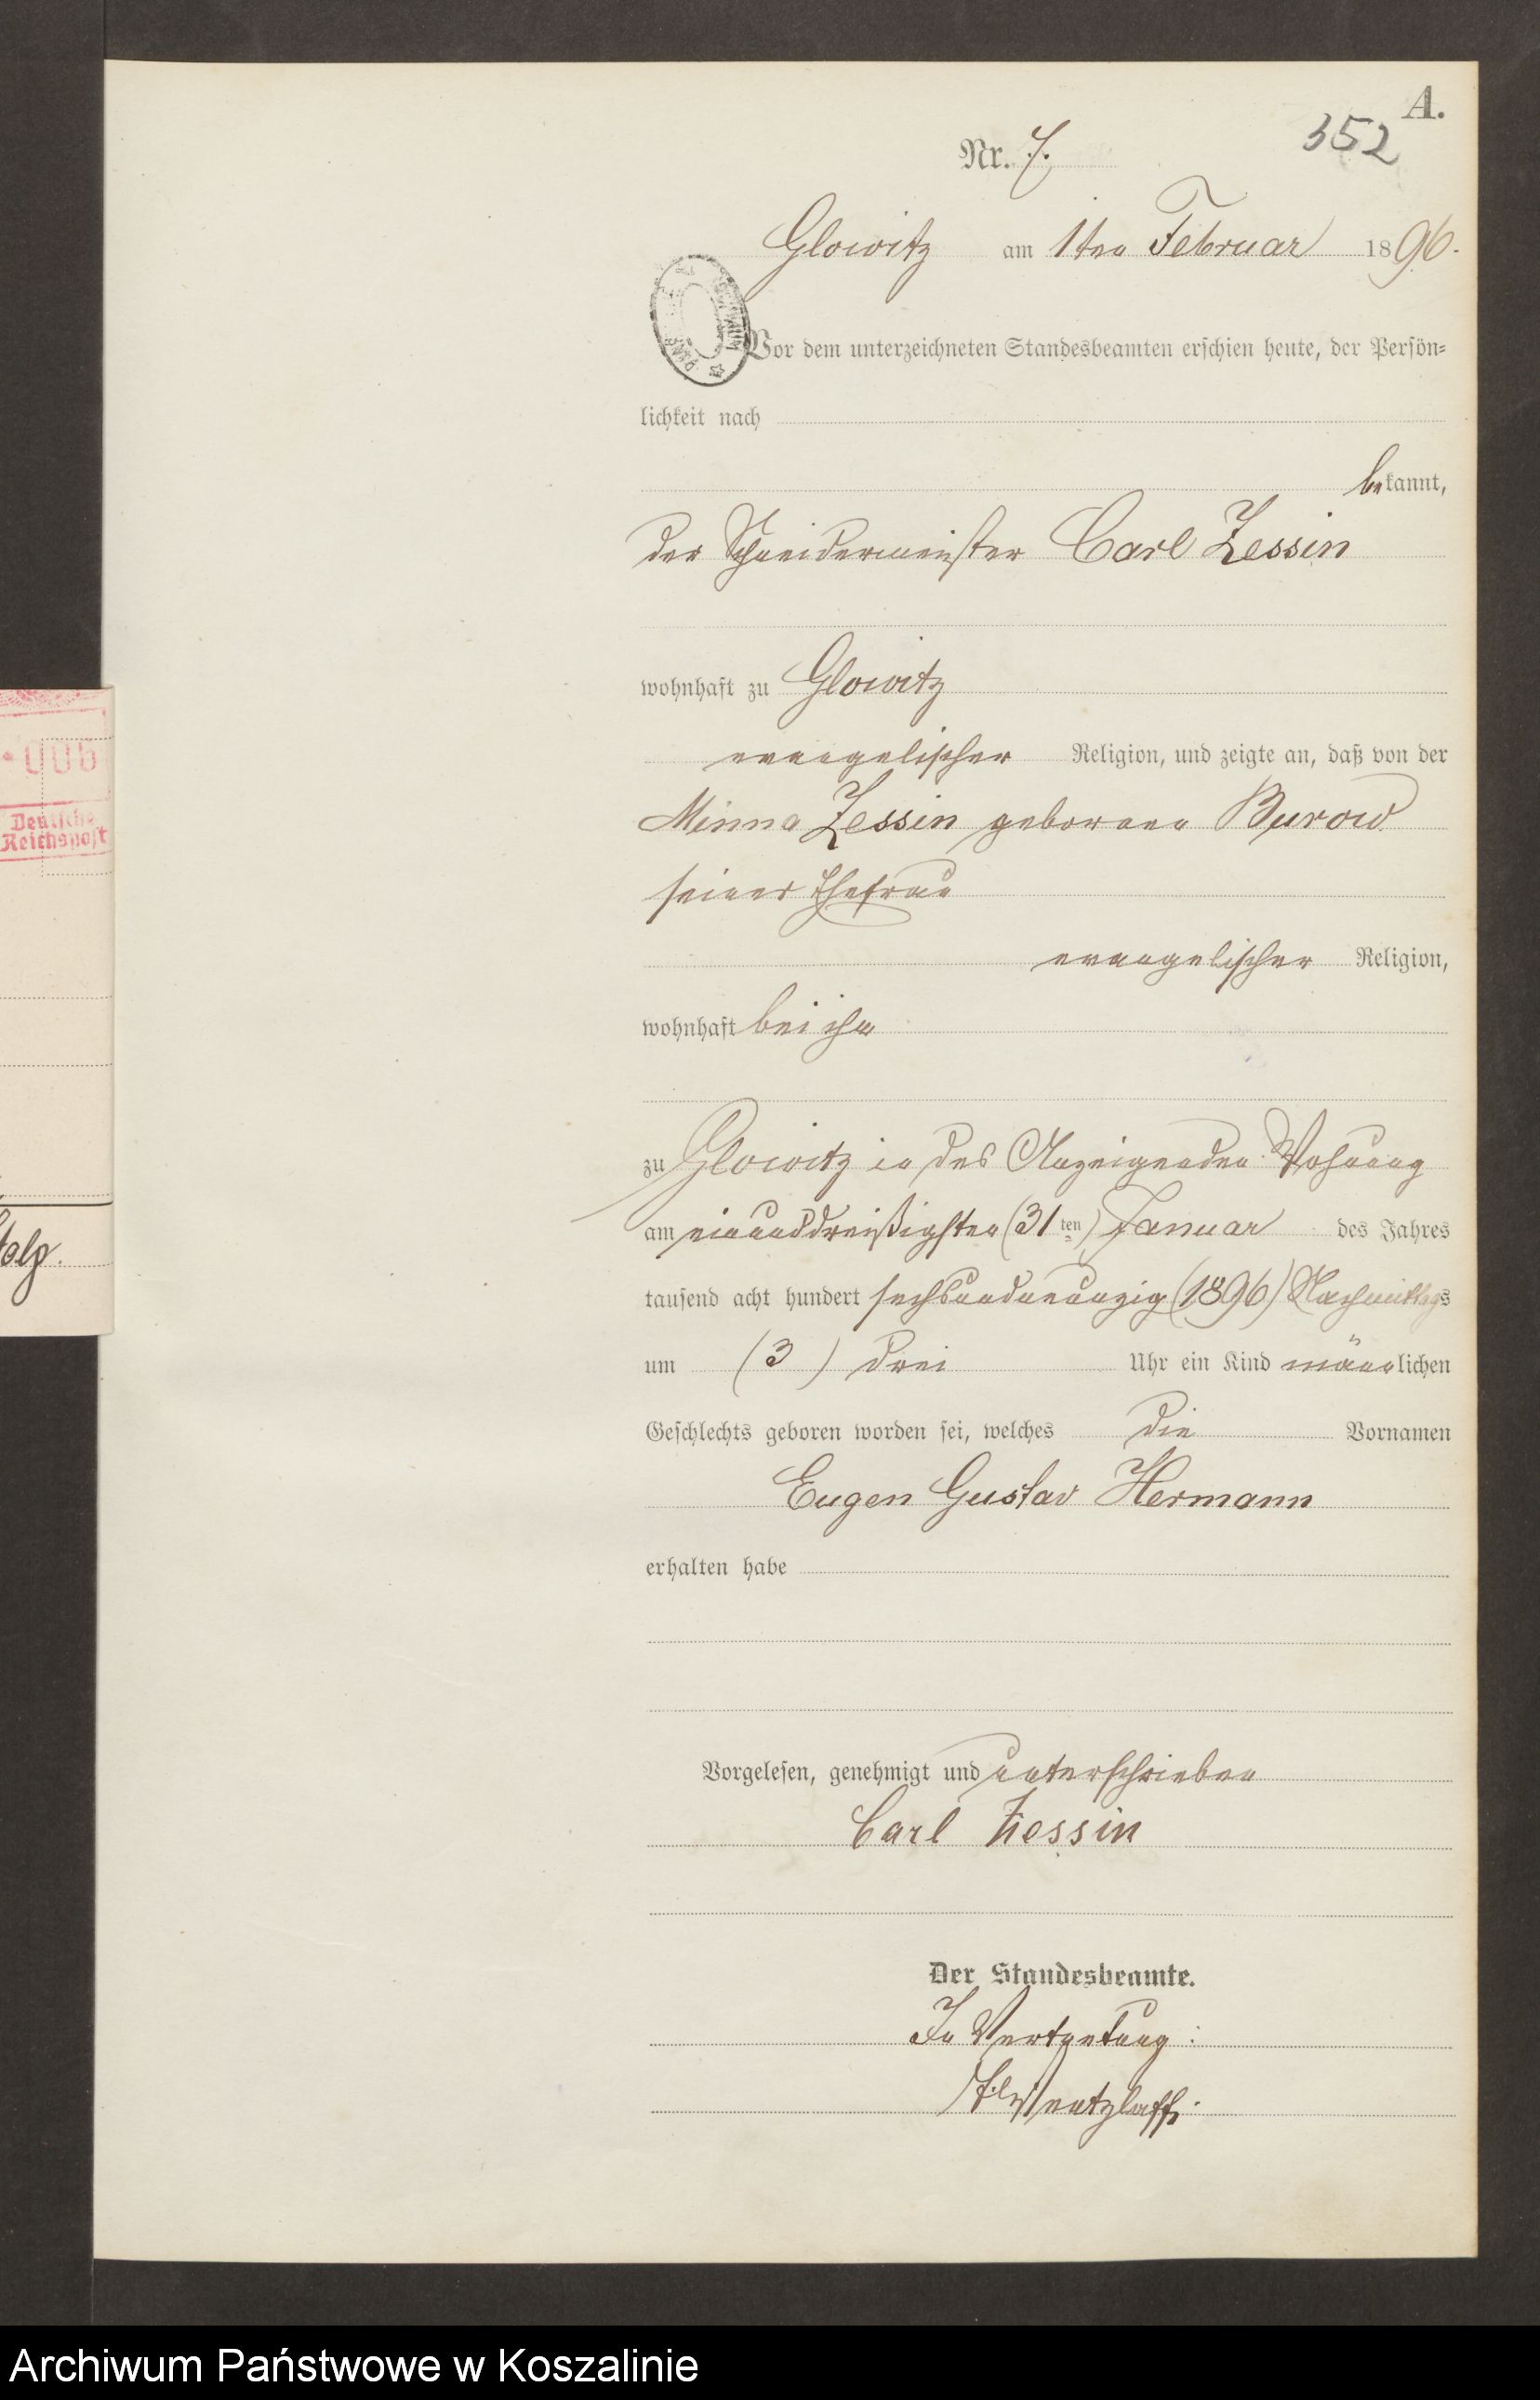 A.
352
Nr. 7.
Glowitz am 1ten Februar 1896.
Vor dem unterzeichneten Standesbeamten erschien heute, der Persön-
lichkeit nach
bekannt,
der Schneidermeister Carl Zessin
wohnhaft zu Glowitz
evangelischer Religion, und zeigte an, daß von der
Minna Zessin geborene Burow
seiner Ehefrau
evangelischer Religion,
wohnhaft bei ihm
zu Glowitz in des Anzeigenden Wohnung
am einunddreißigsten (31ten) Januar des Jahres
tausend acht hundert sechsundneunzig (1896) Nachmittags
um (3) drei Uhr ein Kind männlichen
Geschlechts geboren worden sei, welches die Vornamen
Eugen Gustav Hermann
erhalten habe
Vorgelesen, genehmigt und unterschrieben
Carl Zessin
Der Standesbeamte.
In Vertretung:
Wentzlaff.
Deutsche
Reichspost
Archiwum Państwowe w Koszalinie